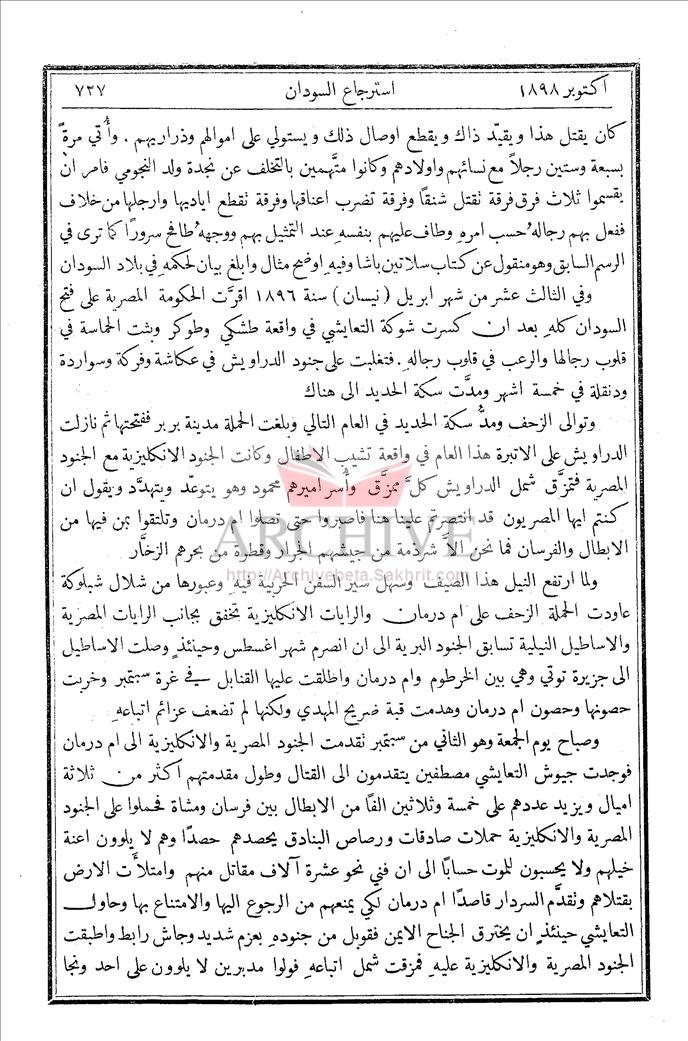 اكتوبر ١٨٩٨ استرجاع السودان ٧٢٧
كان يقتل هذا ويقيّد ذاك ويقطع اوصال ذلك ويستولي على اموالهم وذراريهم . وأُتي مرةً
بسبعة وستين رجلاً مع نسائهم واولادهم وكانوا متَّهمين بالتخلف عن نجدة ولد النجومي فامر ان
يقسموا ثلاث فرق فرقة تقتل شنقًا وفرقة تضرب اعناقها وفرقة تقطع اياديها وارجلها من خلاف
ففعل بهم رجالهُ حسب امرهِ وطاف عليهم بنفسهِ عند التمثيل بهم ووجههُ طافح سرورًا كما ترى في
الرسم السابق وهو منقول عن كتاب سلاتين باشا وفيهِ اوضح مثال وابلغ بيان لحكمهِ في بلاد السودان
وفي الثالث عشر من شهر ابريل ( نيسان ) سنة ١٨٩٦ اقرَّت الحكومة المصرية على فتح
السودان كلهِ بعد ان كسرت شوكة التعايشي في واقعة طشكي وطوكر وبثت الحماسة في
قلوب رجالها والرعب في قلوب رجالهِ . فتغلبت على جنود الدراويش في عكاشة وفركة وسواردة
ودنقلة في خمسة اشهر ومدَّت سكة الحديد الى هناك
وتوالى الزحف ومدُّ سكة الحديد في العام التالي وبلغت الحملة مدينة بربر ففتحتها ثم نازلت
الدراويش على الاتبرة هذا العام في واقعة تشيب الاطفال وكانت الجنود الانكليزية مع الجنود
المصرية فتمزَّق شمل الدراويش كلَّ ممزَّق وأُسر اميرهم محمود وهو يتوعّد ويتهدَّد ويقول ان
كنتم ايها المصريون قد انتصرتم علينا هنا فاصبروا حتى تصلوا ام درمان وتلتقوا بمن فيها من
الابطال والفرسان فما نحن الاَّ شرذمة من جيشهم الجرار وقطرة من بحرهم الزخَّار
ARCHIVE
http://Archivebeta.Sakhrit.com
ولما ارتفع النيل هذا الصيف وسهل سير السفن الحربية فيهِ وعبورها من شلال شبلوكة
عاودت الحملة الزحف على ام درمان والرايات الانكليزية تخفق بجانب الرايات المصرية
والاساطيل النيلية تسابق الجنود البرية الى ان انصرم شهر اغسطس وحينئذٍ وصلت الاساطيل
الى جزيرة توتي وهي بين الخرطوم وام درمان واطلقت عليها القنابل في غرة سبتمبر وخربت
حصونها وحصون ام درمان وهدمت قبة ضريح المهدي ولكنها لم تضعف عزائم اتباعهِ
وصباح يوم الجمعة وهو الثاني من سبتمبر تقدمت الجنود المصرية والانكليزية الى ام درمان
فوجدت جيوش التعايشي مصطفين يتقدمون الى القتال وطول مقدمتهم اكثر من ثلاثة
اميال ويزيد عددهم على خمسة وثلاثين الفًا من الابطال بين فرسان ومشاة فحملوا على الجنود
المصرية والانكليزية حملات صادقات ورصاص البنادق يحصدهم حصدًا وهم لا يلوون اعنة
خيلهم ولا يحسبون للموت حسابًا الى ان فني نحو عشرة آلاف مقاتل منهم وامتلأَت الارض
بقتلاهم وتقدَّم السردار قاصدًا ام درمان لكي يمنعهم من الرجوع اليها والامتناع بها وحاول
التعايشي حينئذٍ ان يخترق الجناح الايمن فقوبل من جنودهِ بعزم شديد وجاش رابط واطبقت
الجنود المصرية والانكليزية عليهِ فمزقت شمل اتباعهِ فولوا مدبرين لا يلوون على احد ونجا